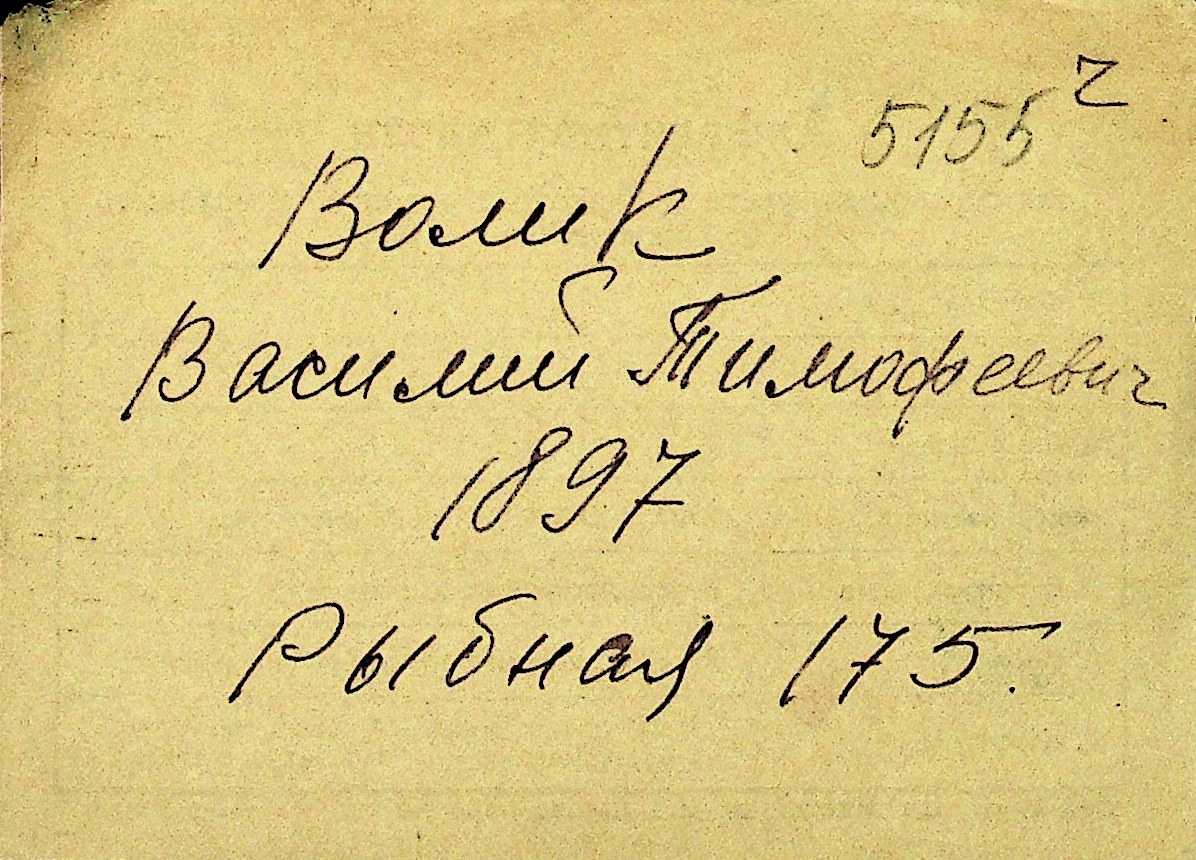 5155 ч
Волик
Василий Тимофеевич
1897
Рыбная 175.